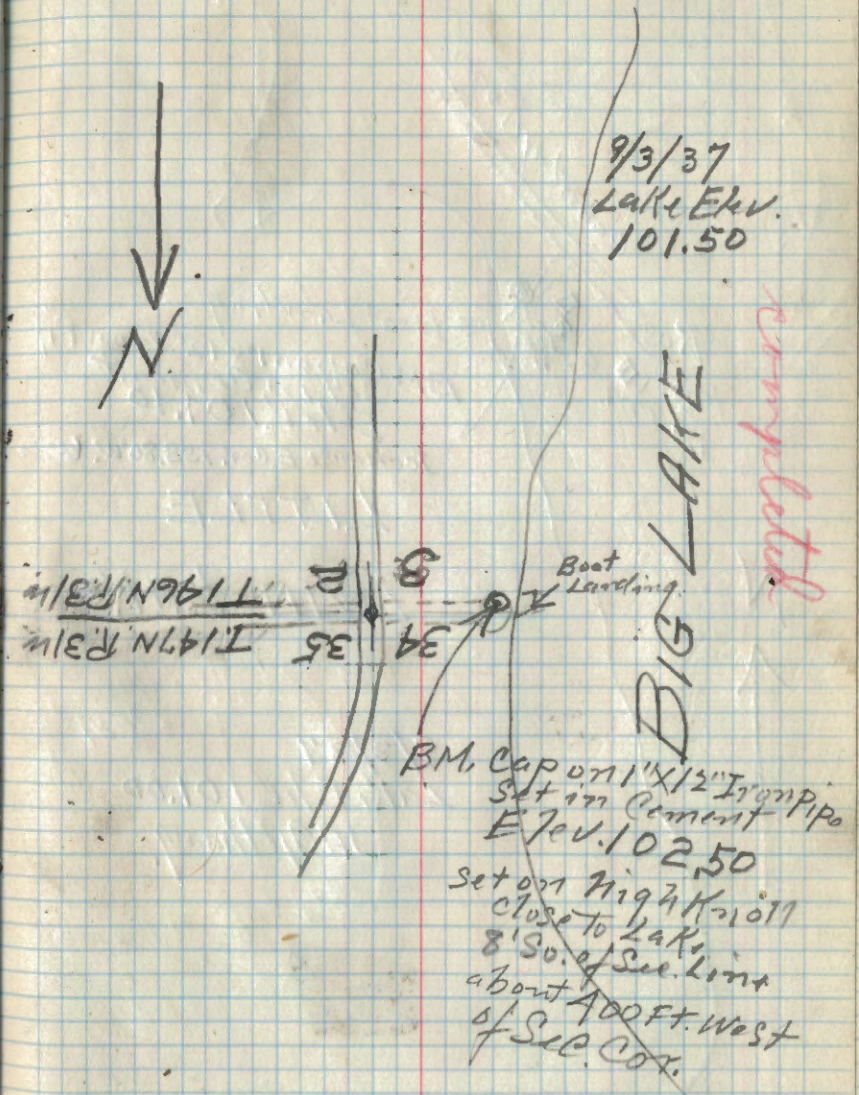 9/3/37
Lake Elev.
101.50
completed
N
BIG LAKE
Boat
Landing
T146N R31W
T.147N R.31W
2
3
35
34
B.M. Cap on 1"X12" Iron pipe
set in Cement
Elev. 102.50
set on High Knoll
close to Lake
8' So. of Sec. Line
about 400 Ft. West
of Sec. Cor.